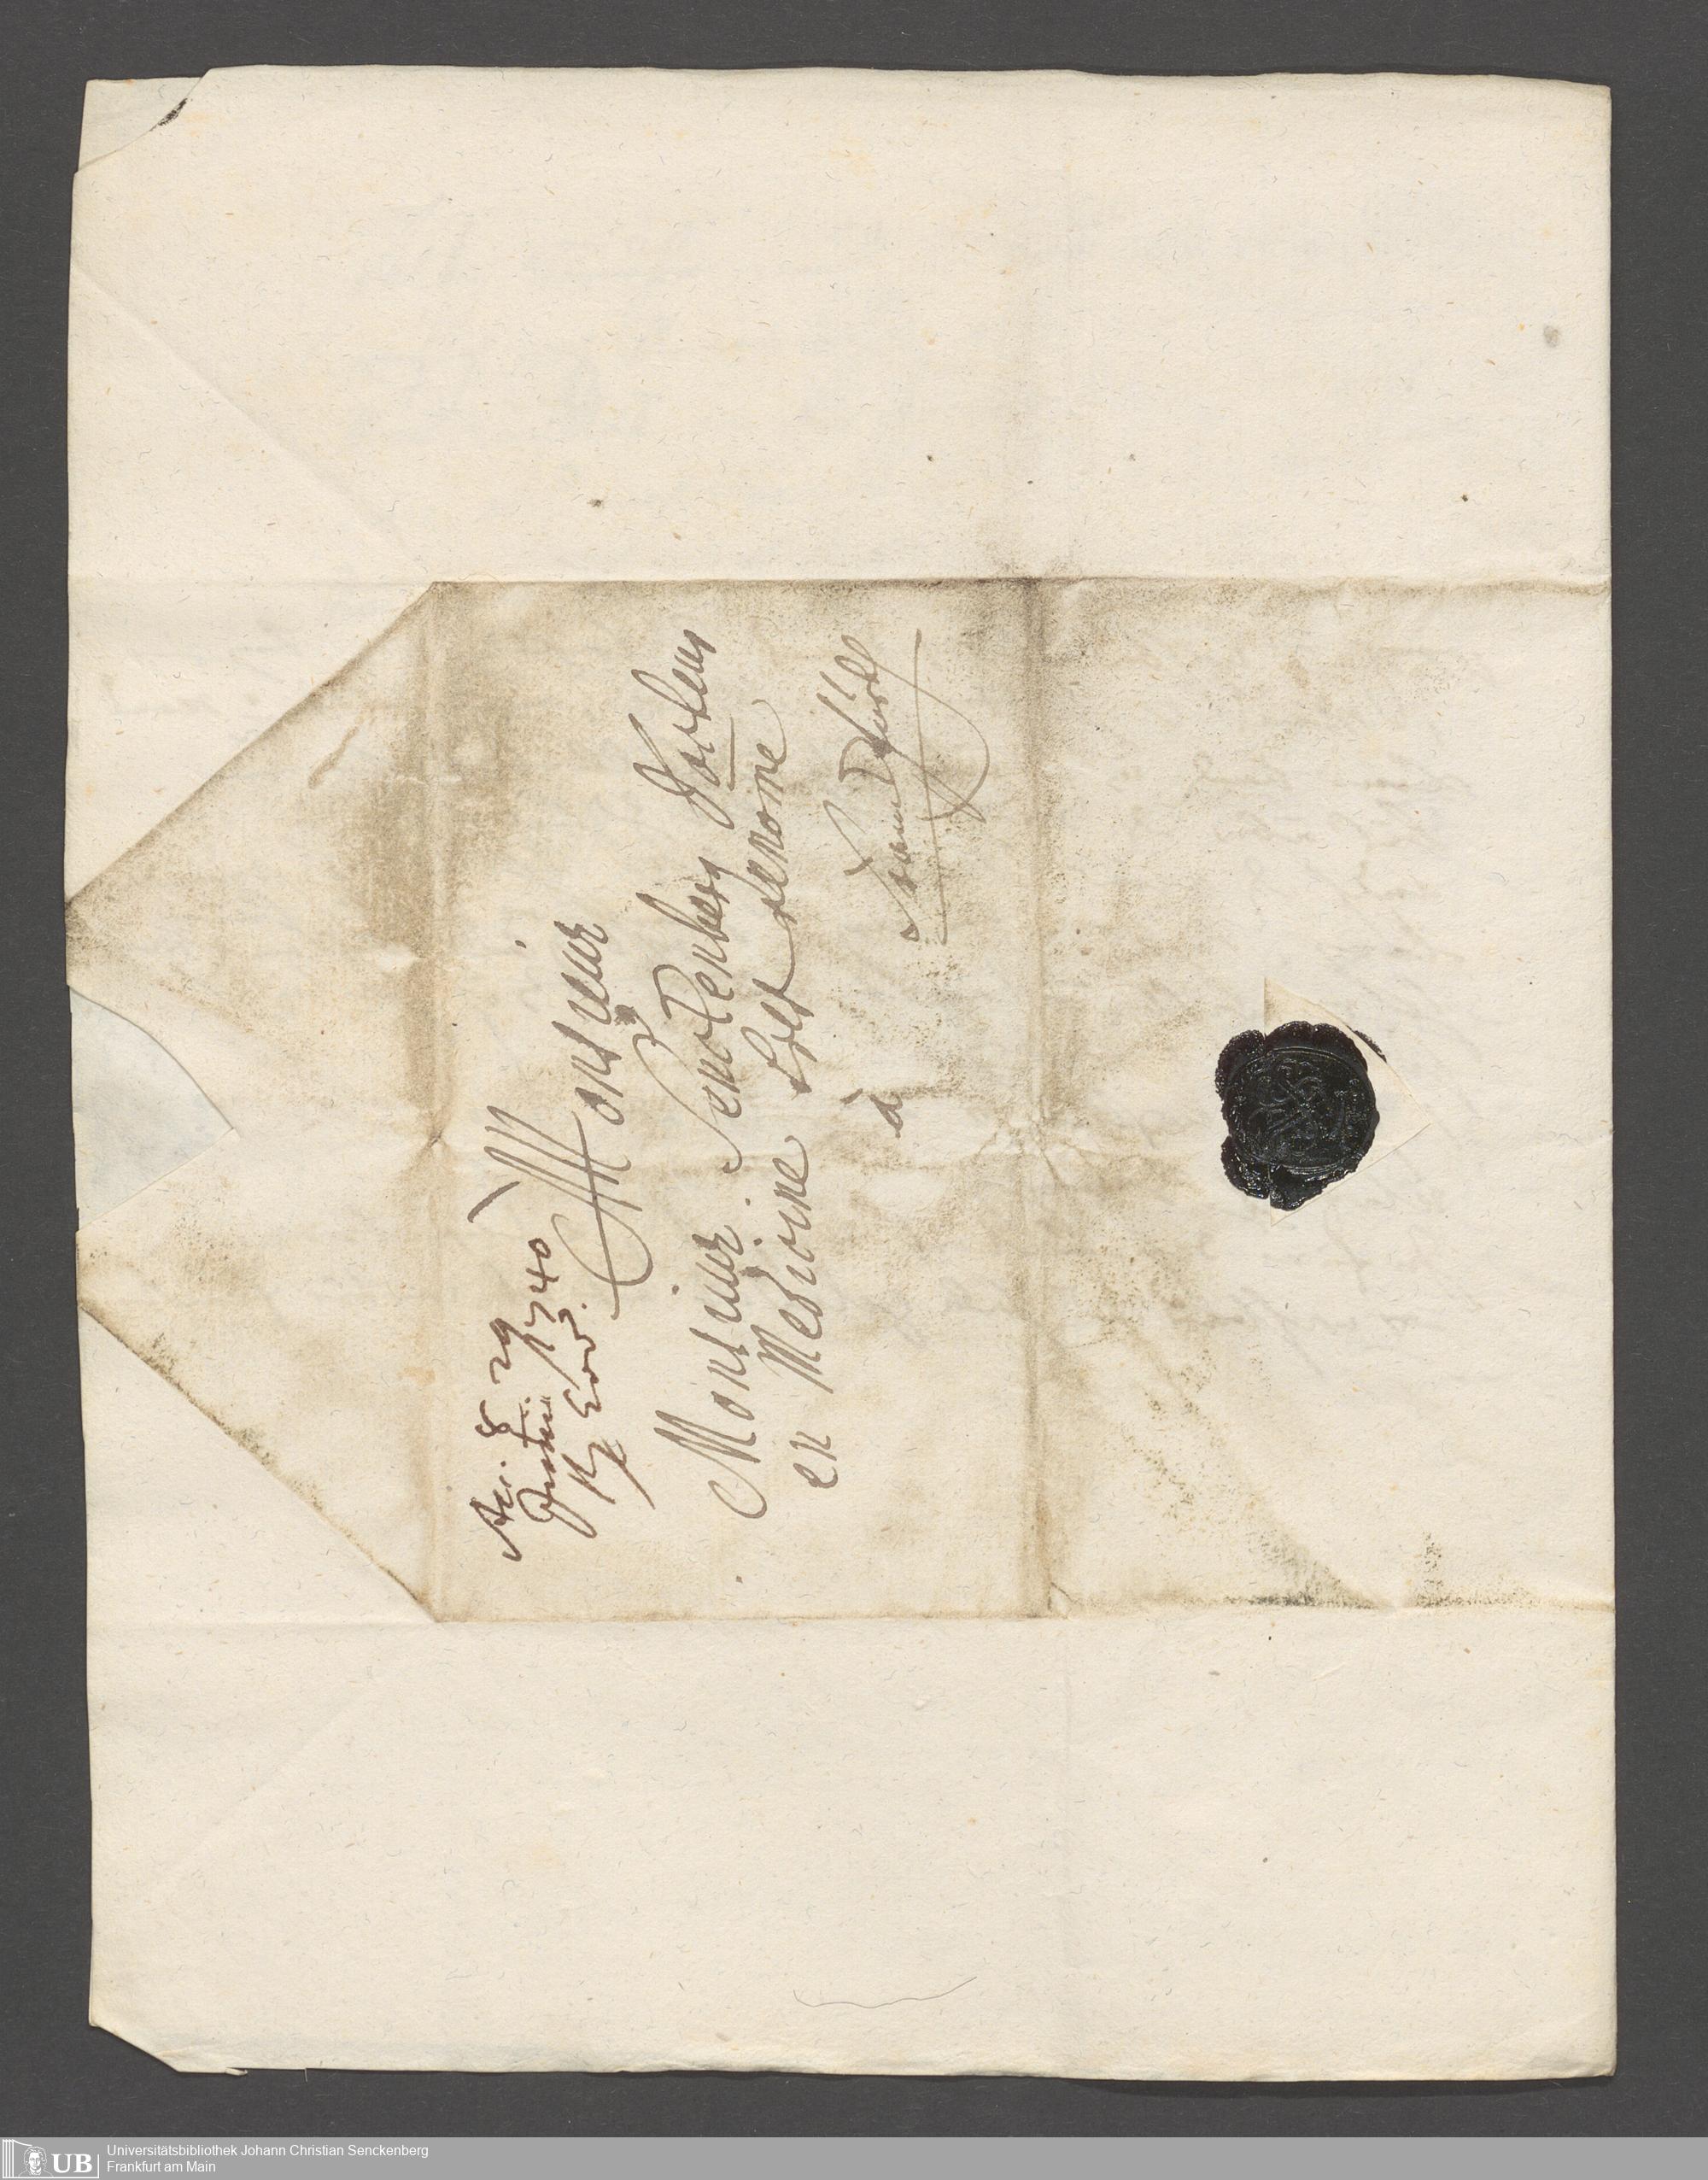 Acc. 8 29
1740
Monsieur
Monsieur Senckenberg Docteur
en Medicine très renomé
à
Francfurth
UB
Universitätsbibliothek Johann Christian Senckenberg
Frankfurt am Main